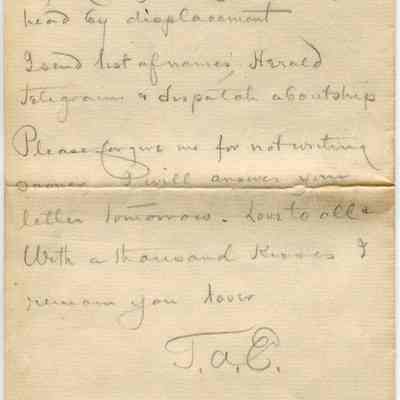 head by displacement
I send list of names, Herald
Telegram & dispatch about ship
Please forgive me for not writing
sooner, I will answer your
letter tomorrow. Love to all &
With a thousand Kisses I
remain you lover
T.A.E.